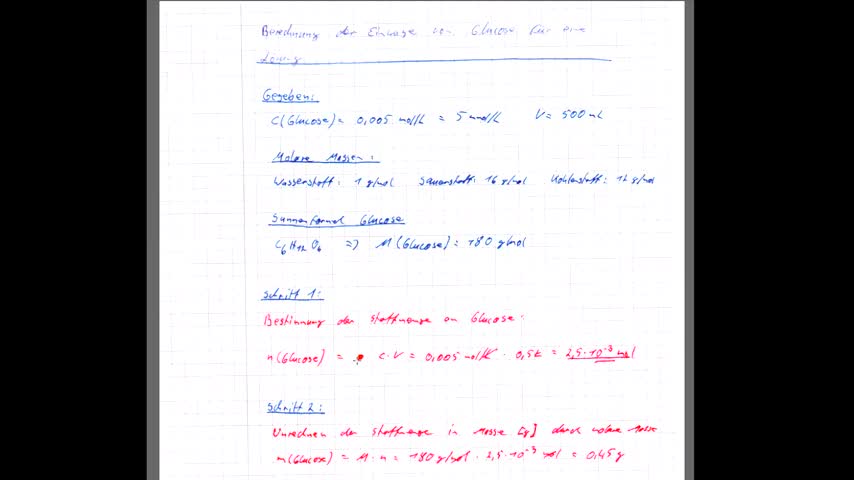 Berechnung der Einwaage von Glucose für eine
Lösung
Gegeben:
C(Glucose) = 0,005 mol/L = 5 mmol/L V = 500 mL
Molare Massen:
Wasserstoff: 1 g/mol Sauerstoff: 16 g/mol Kohlenstoff: 12 g/mol
Summenformel Glucose
C6H12O6 => M(Glucose) = 180 g/mol
Schritt 1:
Bestimmung der Stoffmenge an Glucose:
n(Glucose) = C·V = 0,005 mol/L · 0,5L = 2,5·10⁻³ mol
Schritt 2:
Umrechnen der Stoffmenge in Masse [g] durch molare Masse
m(Glucose) = M·n = 180 g/mol · 2,5·10⁻³ mol = 0,45 g